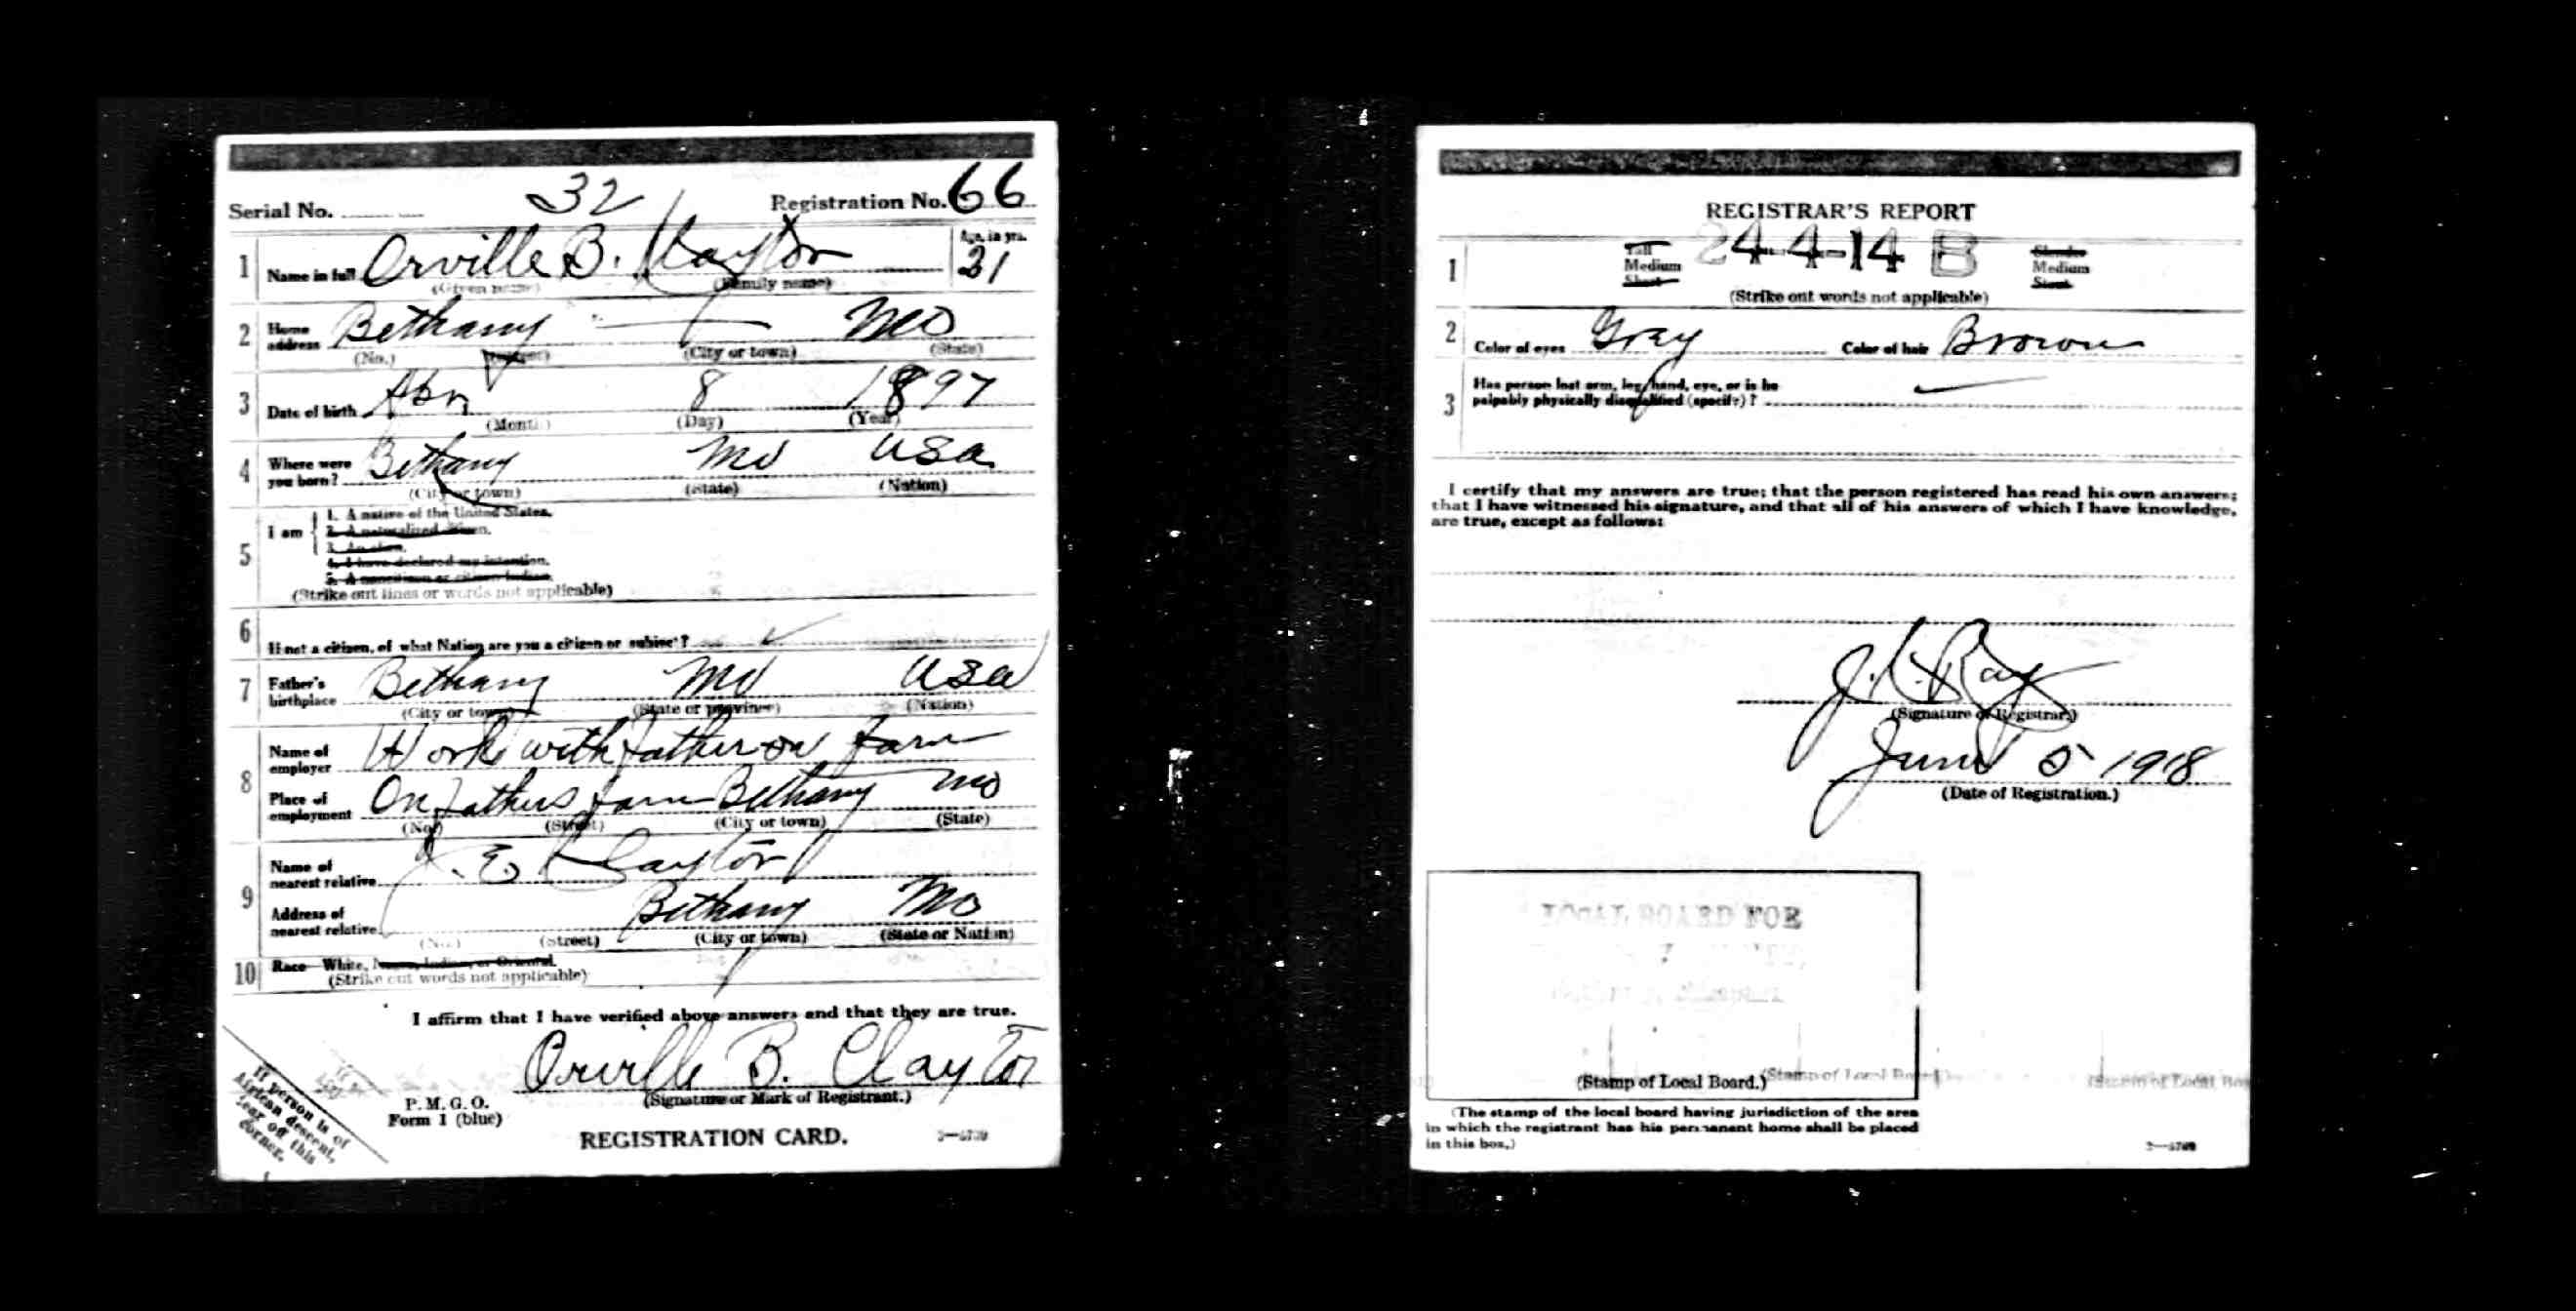 Serial No. 32 Registration No. 66
1 Name in full Orville B. Clayton Age, in yrs. 21
(Given name) (Family name)
2 Home address Bethany Mo
(No.) (Street) (City or town) (State)
3 Date of birth Apr 8 1897
(Month) (Day) (Year)
4 Where were you born? Bethany Mo USA
(City or town) (State) (Nation)
5 I am
1. A native of the United States.
2. A naturalized citizen.
3. An alien.
4. I have declared my intention.
5. A noncitizen or citizen Indian.
(Strike out lines or words not applicable)
6 If not a citizen, of what Nation are you a citizen or subject?
7 Father's birthplace Bethany Mo USA
(City or town) (State or province) (Nation)
8 Name of employer Work with father on farm
Place of employment On fathers farm Bethany Mo
(No.) (Street) (City or town) (State)
9 Name of nearest relative J. E. Clayton
Address of nearest relative Bethany Mo
(No.) (Street) (City or town) (State or Nation)
10 Race—White, Negro, Indian, or Oriental.
(Strike out words not applicable)
I affirm that I have verified above answers and that they are true.
Orville B. Clayton
(Signature or Mark of Registrant.)
P. M. G. O.
Form 1 (blue)
REGISTRATION CARD.
If person is of
African descent,
tear off this
corner.
REGISTRAR'S REPORT
24-4-14 B
1 Tall Medium Short Slender Medium Stout
(Strike out words not applicable)
2 Color of eyes Gray Color of hair Brown
3 Has person lost arm, leg, hand, eye, or is he
palpably physically disqualified (specify)?
I certify that my answers are true; that the person registered has read his own answers;
that I have witnessed his signature, and that all of his answers of which I have knowledge,
are true, except as follows:
Ray
(Signature of Registrar)
June 5 1918
(Date of Registration.)
LOCAL BOARD FOR
(Stamp of Local Board.) (Stamp of Local Board.) (Stamp of Local
(The stamp of the local board having jurisdiction of the area
in which the registrant has his permanent home shall be placed
in this box.)